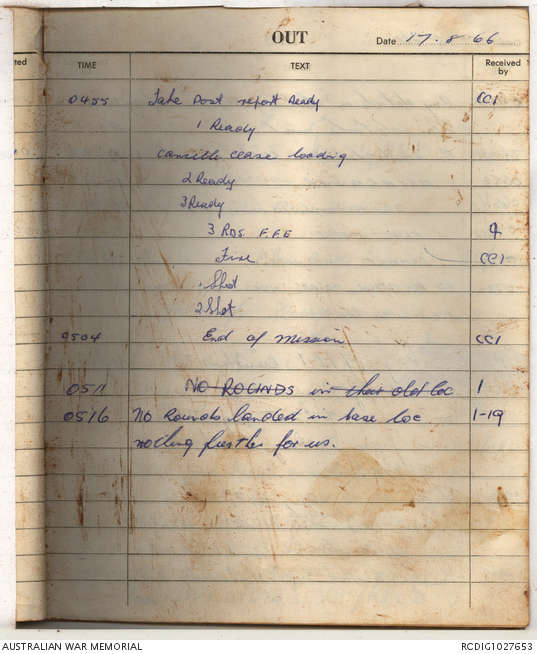 OUT
Date 17.8.66
ted TIME TEXT Received by
0455 Take Post report Ready CC1
1 Ready
cancelle cease loading
2 Ready
3 Ready
3 RDS F.F.E
Fire CC1
1 Shot
2 Shot
0504 End of Mission CC1
0511 NO ROUNDS in their old loc 1
0516 NO Rounds landed in base loc 1-19
nothing further for us.
AUSTRALIAN WAR MEMORIAL RCDIG1027653